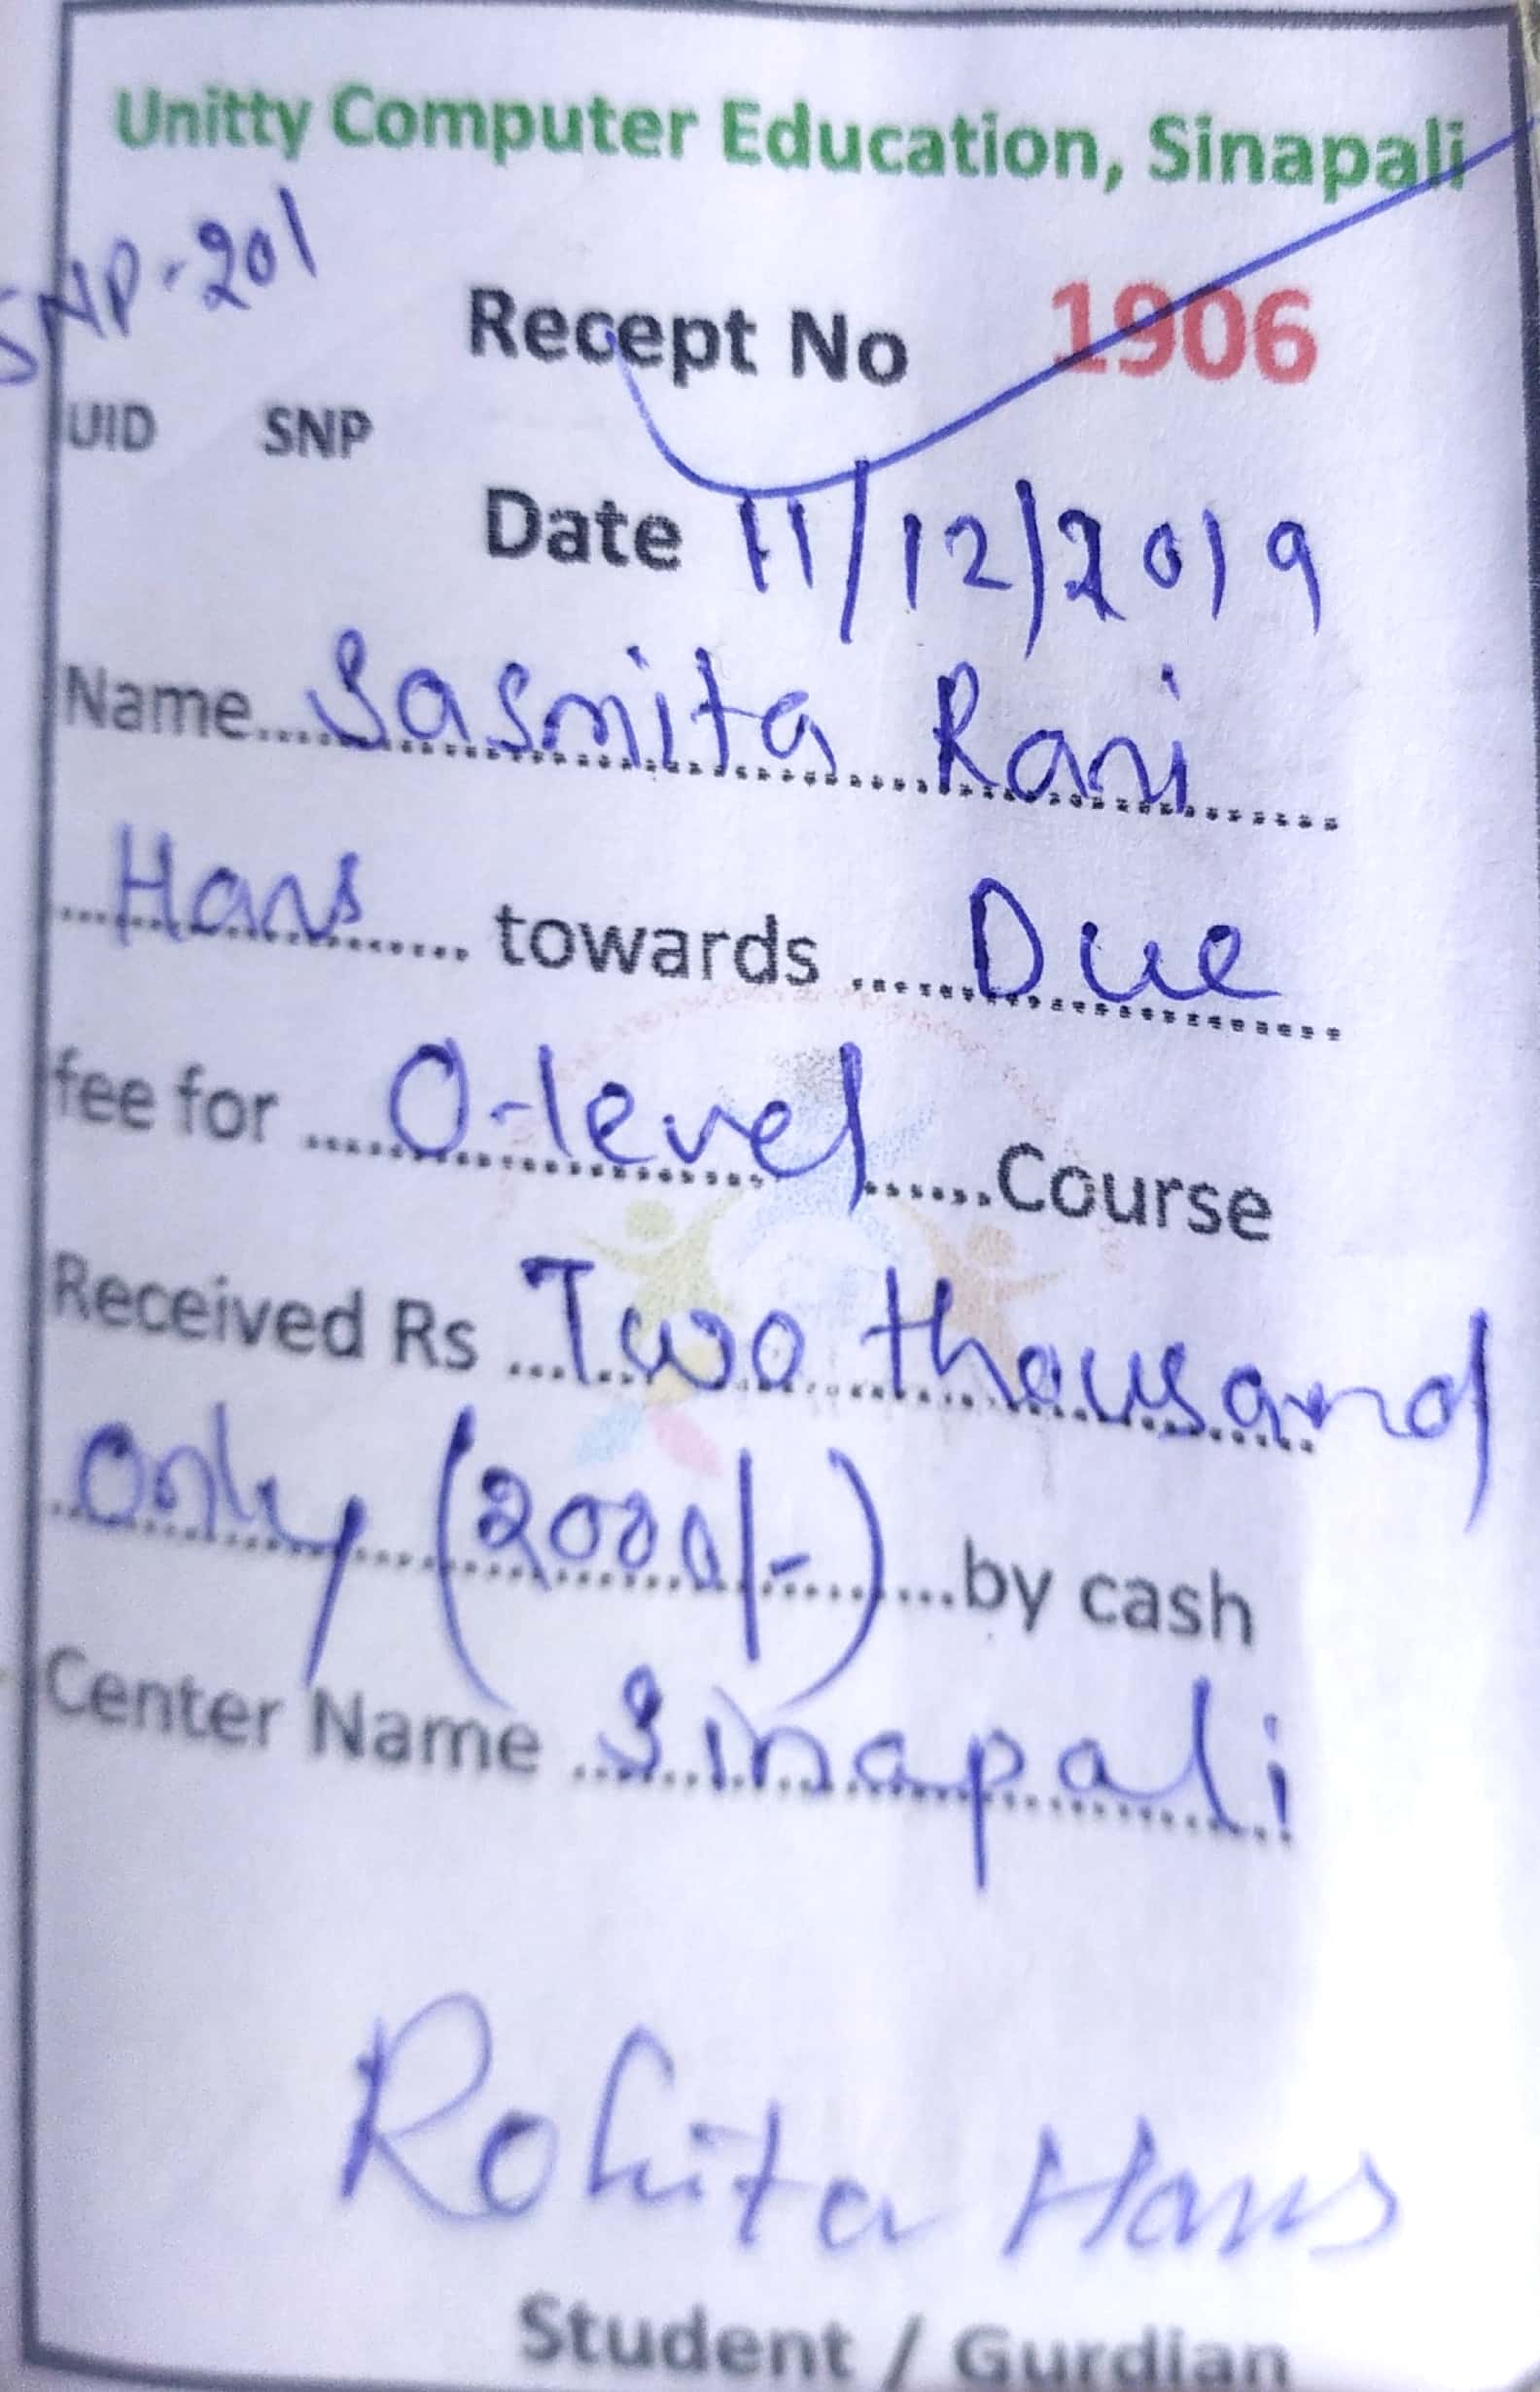 Unitty Computer Education, Sinapali
SNP-201
Recept No 1906
UID SNP
Date 11/12/2019
Name....Sasmita Rani
Hans towards ....Due
fee for ....O-level......Course
Received Rs ...Two thousand
only (2000/-)...by cash
Center Name ...Sinapali
Rohita Hans
Student / Gurdian